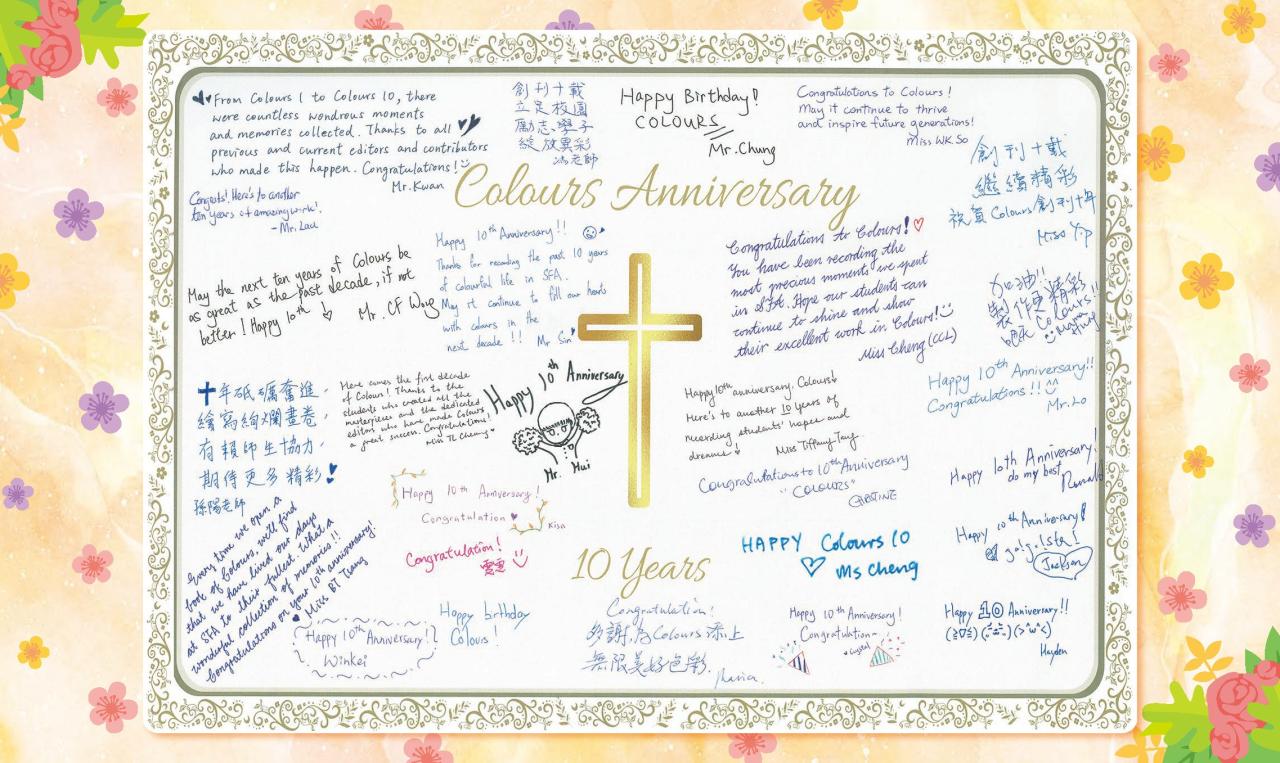 From Colours 1 to Colours 10, there
were countless wondrous moments
and memories collected. Thanks to all
previous and current editors and contributors
who made this happen. Congratulations!
Mr. Kwan
創刊十載
立足校園
勵志學子
綻放異彩
馮老師
Happy Birthday!
COLOURS
Mr. Chung
Congratulations to Colours!
May it continue to thrive
and inspire future generations!
Miss WK So
創刊十載
繼續精彩
祝賀Colours創刊十年
Miss Yip
Colours Anniversary
Congrats! Here's to another
ten years of amazing work!
- Mr. Lau
May the next ten years of Colours be
as great as the past decade, if not
better! Happy 10th
Mr. CF Wong
Happy 10th Anniversary!!
Thanks for recording the past 10 years
of colourful life in SFA.
May it continue to fill our hearts
with colours in the
next decade!!
Mr Sin
Congratulations to Colours!
You have been recording the
most precious moments we spent
in SFA. Hope our students can
continue to shine and show
their excellent work in Colours!
Miss Cheng (CCL)
加油!!
製作更精彩
Colours!!
十年砥礪奮進,
繪寫絢爛畫卷,
有賴師生協力,
期待更多精彩,
孫陽老師
Here comes the first decade
of Colours! Thanks to the
students who created all the
masterpieces and the dedicated
editors who have made Colours
a great success. Congratulations!
Miss TL Cheung
Happy 10th Anniversary
Mr. Hui
Happy 10th anniversary, Colours!
Here's to another 10 years of
recording students' hopes and
dreams!
Miss Tiffany Tang
Happy 10th Anniversary!!
Congratulations!!
Mr. Lo
Congratulations to 10th Anniversary
"COLOURS"
Happy 10th Anniversary!
do my best
Ronald
Happy 10th Anniversary!
Congratulation
Kisa
Every time we open a
book of Colours, we'll find
that we have lived our days
at SFA to their fullest. What a
wonderful collection of memories!!
Congratulations on your 10th anniversary!
Miss BT Tsang
Congratulation!
10 Years
HAPPY Colours 10
Ms Cheng
Happy 10th Anniversary!
Jackson
Happy 10th Anniversary!
Winkei
Happy birthday
Colours!
Congratulation!
多謝為Colours添上
無限美好色彩.
Happy 10th Anniversary!
Congratulation~
Crystal
Happy 10 Anniversary!!
Hayden